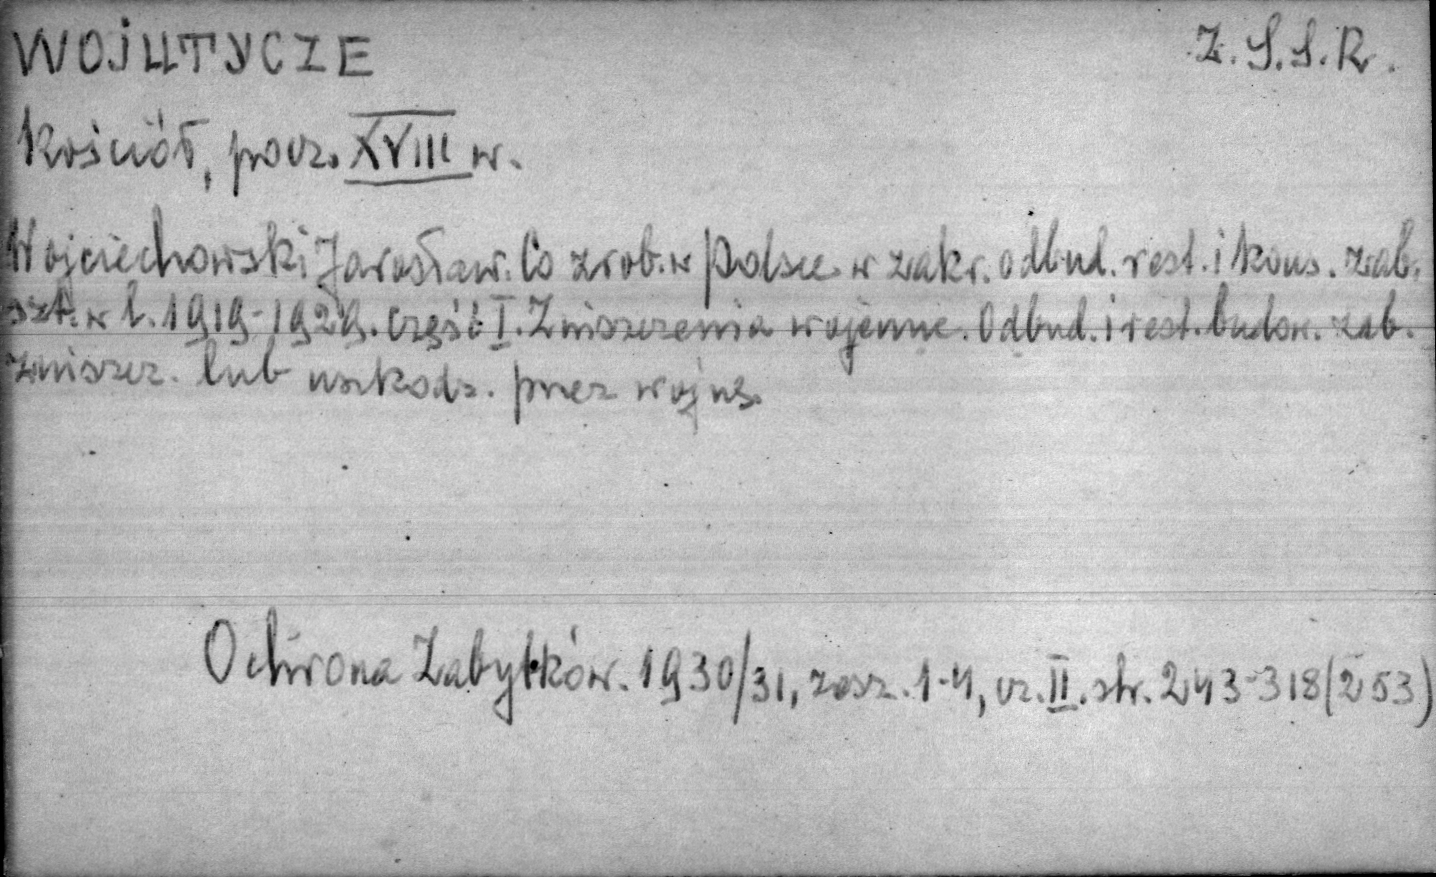 WOJUTYCZE Z.S.S.R.
Kościół, pocz. XVIII w.
Wojciechowski Jarosław. Co zrob. w Polsce w zakr. odbud. rest. i kons. zab.
szt. w l. 1919-1929. Część I. Zniszczenia wojenne. Odbud. i rest. budow. zab.
zniszcz. lub uszkodz. przez wojnę.
Ochrona Zabytków. 1930/31, zesz. 1-4, cz. II. str. 243-318 (253)